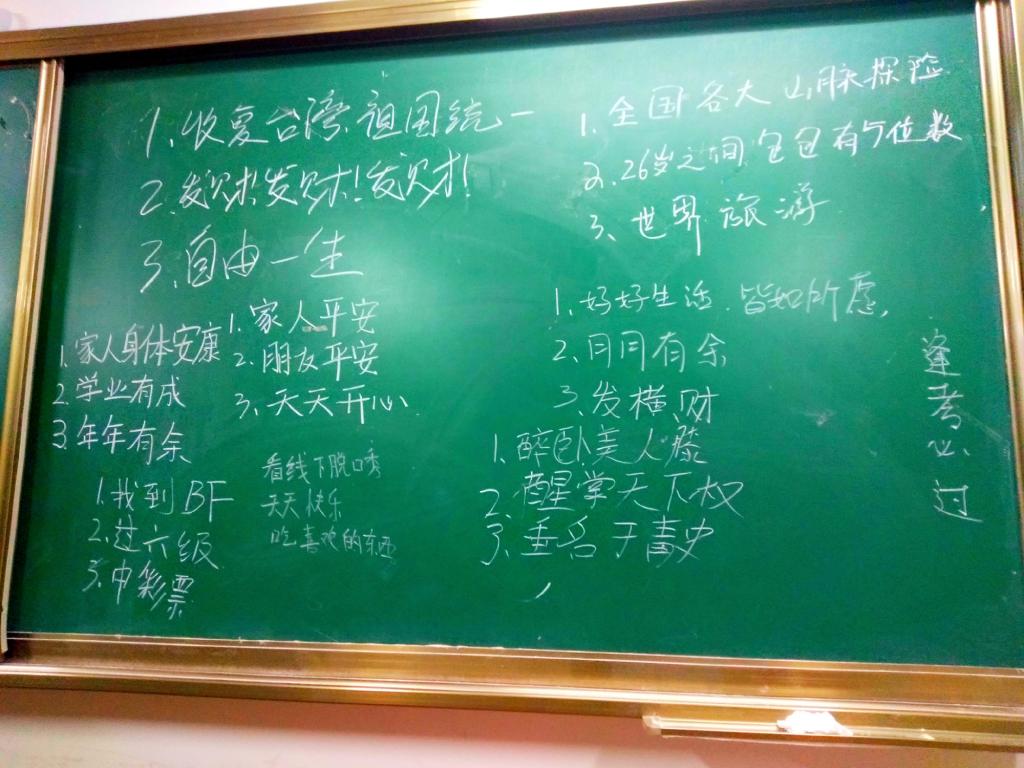 1.收复台湾祖国统一
2.发财!发财!发财!
3.自由一生
1.全国各大山脉探险
2.26岁之间包包有5位数
3、世界旅游
1.家人身体安康
2.学业有成
3.年年有余
1.家人平安
2.朋友平安
3.天天开心
1.好好生活.皆如所愿,
2.月月有余
3.发横财
逢考必过
1.找到BF
2.过六级
3.中彩票
看线下脱口秀
天天快乐
吃喜欢的东西
1.醉卧美人膝
2.醒掌天下权
3、垂名于青史